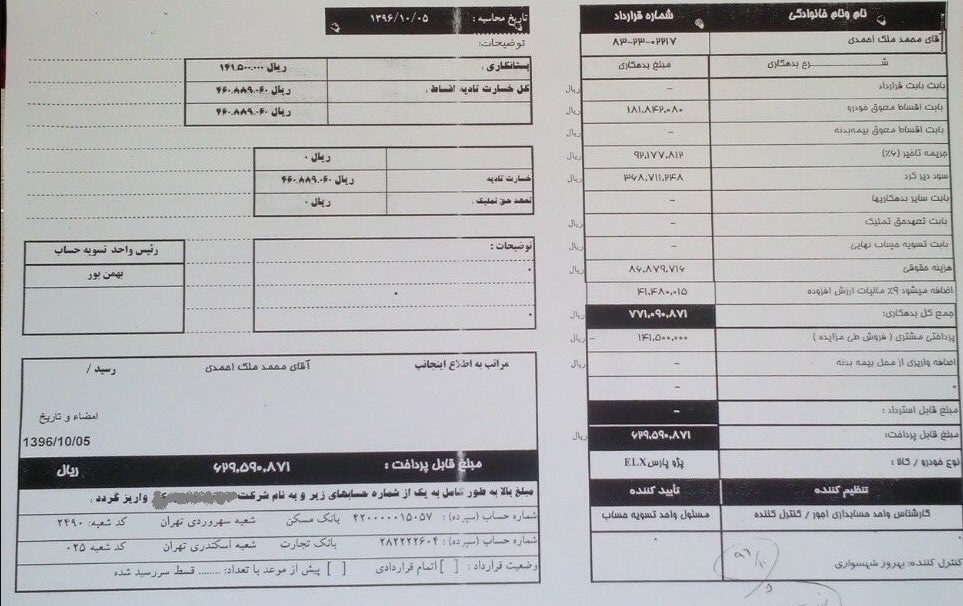 نام ونام خانوادگی : شماره قرارداد
آقای محمد ملک احمدی ۸۳-۲۳-۰۲۲۱۷
شـــرح بدهکاری مبلغ بدهکاری
بابت بابت قرارداد - ریال
بابت اقساط معوق خودرو ۱۸۱.۸۴۲.۰۸۰ ریال
بابت اقساط معوق بیمه بدنه - ریال
جریمه تاخیر (۶٪) ۹۲.۱۷۷.۸۱۲ ریال
سود دیر کرد ۳۶۸.۷۱۱.۲۴۸ ریال
بابت سایر بدهکاریها -
بابت تعهدحق تملیک - ریال
بابت تسویه حساب نهایی - ریال
هزینه حقوقی ۸۶.۸۷۹.۷۱۶ ریال
اضافه میشود ۹٪ مالیات ارزش افزوده ۴۱.۴۸۰.۰۱۵
جمع کل بدهکاری: ۷۷۱.۰۹۰.۸۷۱ ریال
پرداختی مشتری ( فروش طی مزایده ) ۱۴۱.۵۰۰.۰۰۰ - ریال
اضافه واریزی از محل بیمه بدنه - ریال
-
مبلغ قابل استرداد : -
مبلغ قابل پرداخت: ۶۲۹.۵۹۰.۸۷۱ ریال
نوع خودرو / کالا : پژو پارس ELX
تنظیم کننده تأیید کننده
کارشناس واحد حسابداری امور / کنترل کننده مسئول واحد تسویه حساب
کنترل کننده: بهروز شهسواری
تاریخ محاسبه : ۱۳۹۶/۱۰/۰۵
توضیحات:
بستانکاری : ۱۴۱.۵۰۰.۰۰۰ ریال
کل خسارت تادیه اقساط : ۴۶۰.۸۸۹.۰۶۰ ریال
۴۶۰.۸۸۹.۰۶۰ ریال
۰ ریال
خسارت تادیه ۴۶۰.۸۸۹.۰۶۰ ریال
تعهد حق تملیک . ۰ ریال
توضیحات :
رئیس واحد تسویه حساب
بهمن پور
مراتب به اطلاع اینجانب آقای محمد ملک احمدی رسید /
امضاء و تاریخ
1396/10/05
مبلغ قابل پرداخت : ۶۲۹.۵۹۰.۸۷۱ ریال
مبلغ بالا به طور کامل به یک از شماره حسابهای زیر و به نام شرکت واریز گردد .
شماره حساب (سپرده) : ۴۲۰۰۰۰۰۱۵۰۵۷ بانک مسکن شعبه سهروردی تهران کد شعبه: ۲۴۹۰
شماره حساب (سپرده): ۲۸۲۲۲۲۶۰۴ بانک تجارت شعبه اسکندری تهران کد شعبه ۰۲۵
وضعیت قرارداد : [ ] اتمام قراردادی [ ] پیش از موعد با تعداد: ........ قسط سررسید شده